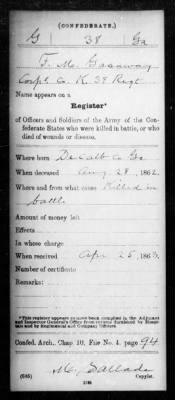 (CONFEDERATE.)
G 38 Ga
F. M. Gassaway
Corpl Co. K. 38 Regt
Name appears on a
Register*
of Officers and Soldiers of the Army of the Confederate States who were killed in battle, or who died of wounds or disease.
Where born DeCalb Co Ga
When deceased Aug 28, 1862.
Where and from what cause Killed in
battle
Amount of money left
Effects
In whose charge
When received Apr 25, 1863.
Number of certificate
Remarks:
*This register appears to have been compiled in the Adjutant and Inspector General's Office from returns furnished by Hospitals and by Regimental and Company Officers.
Confed. Arch. Chap. 10, File No. 4, page 94
(635)
Copyist.